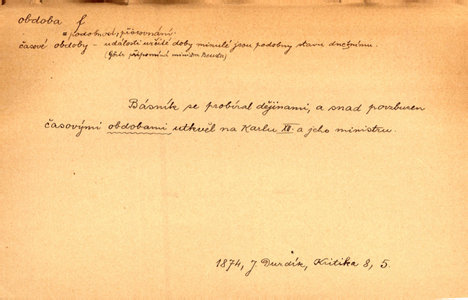 obdoba f
= podobnost, přirovnání.
časové obdoby - události určité doby minulé jsou podobny stavu dnešnímu.
(Görtz připomíná ministra Beusta)
Básník se probíral dějinami, a snad povzbuzen
časovými obdobami utkvěl na Karlu XII. a jeho ministru.
1874, J. Durdík, Kritika 8, 5.